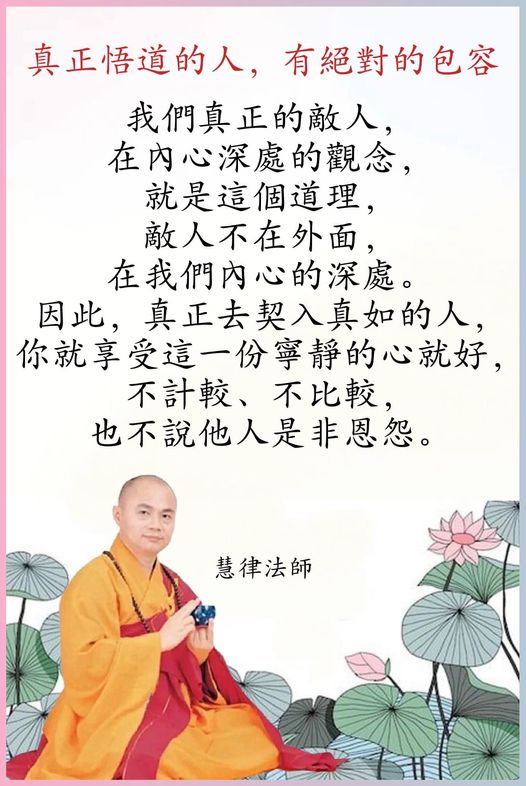 真正悟道的人，有絕對的包容
我們真正的敵人，
在內心深處的觀念，
就是這個道理，
敵人不在外面，
在我們內心的深處。
因此，真正去契入真如的人，
你就享受這一份寧靜的心就好，
不計較、不比較，
也不說他人是非恩怨。
慧律法師